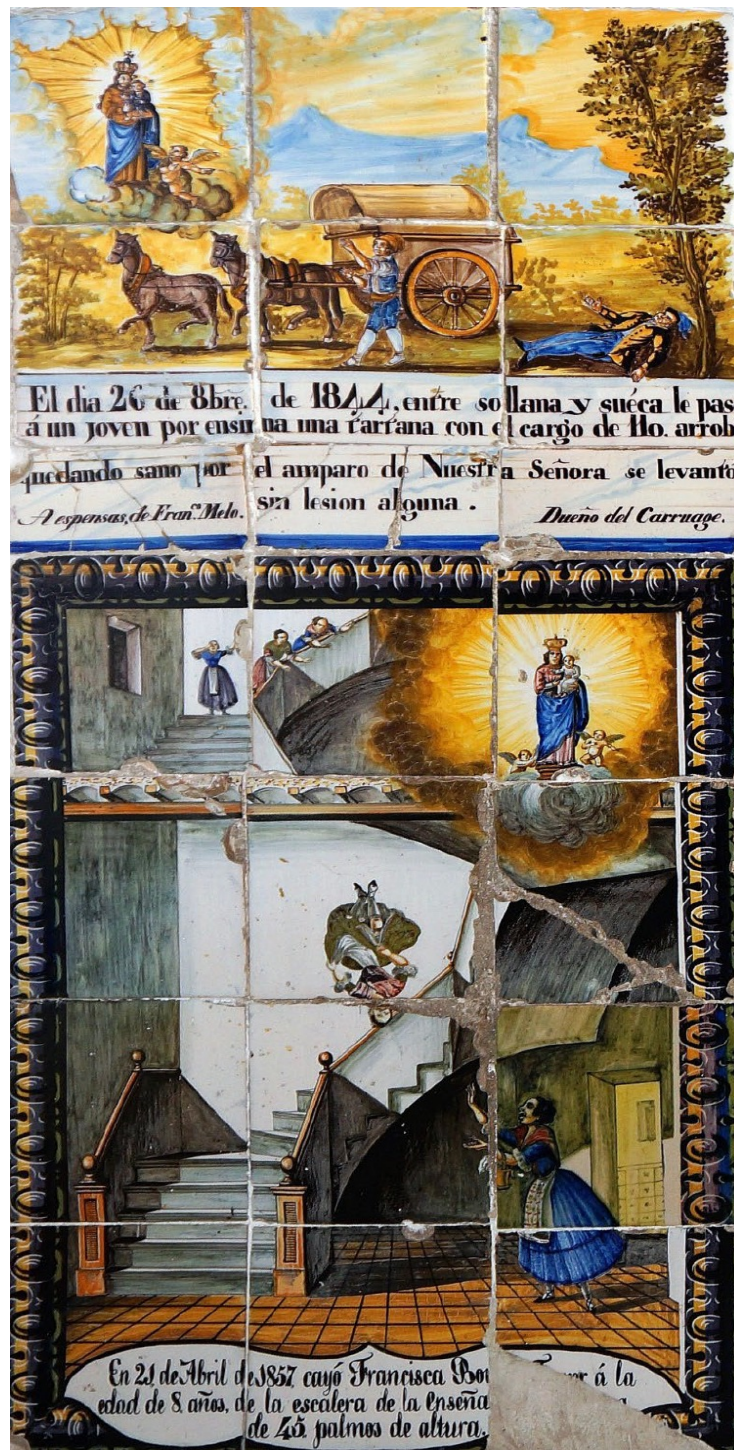 El dia 26 de 8bre. de 1844, entre sollana y suéca le pas
á un joven por ensima una tartana con el cargo de 110. arrob
quedando sano por el amparo de Nuestra Señora se levantó
sin lesion alguna.
A espensas, de Fran.co Melo. Dueño del Carruage.
En 21 de Abril de 1857 cayó Francisca á la
edad de 8 años, de la escalera de la Enseña
de 45 palmos de altura.